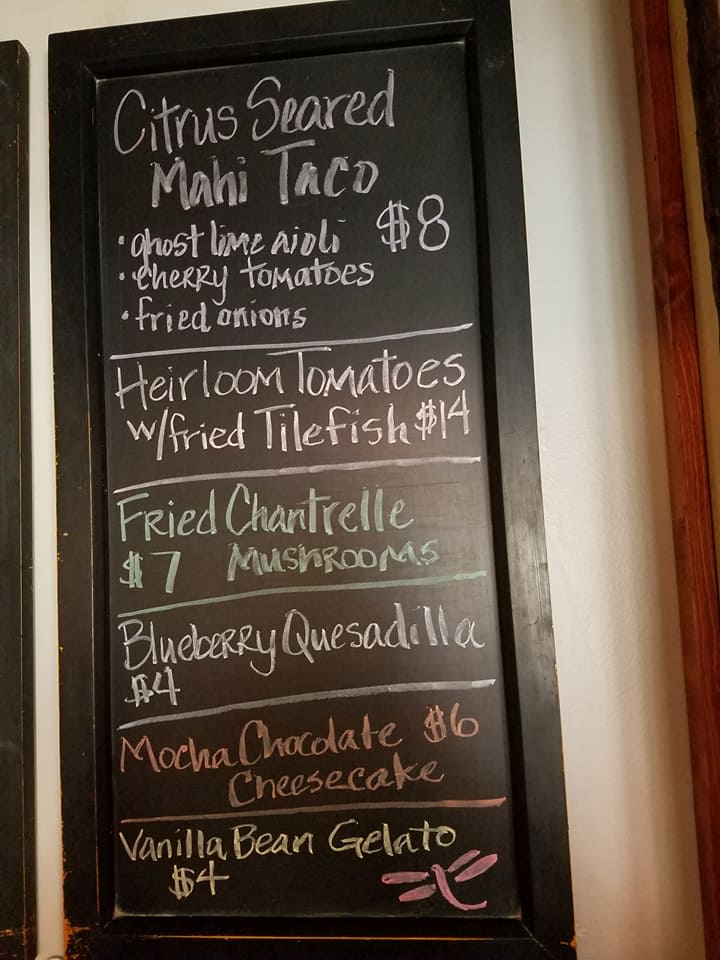 Citrus Seared
Mahi Taco
• ghost lime aioli $8
• cherry tomatoes
• fried onions
Heirloom Tomatoes
w/fried Tilefish $14
Fried Chantrelle
$7 Mushrooms
Blueberry Quesadilla
$4
Mocha Chocolate $6
Cheesecake
Vanilla Bean Gelato
$4